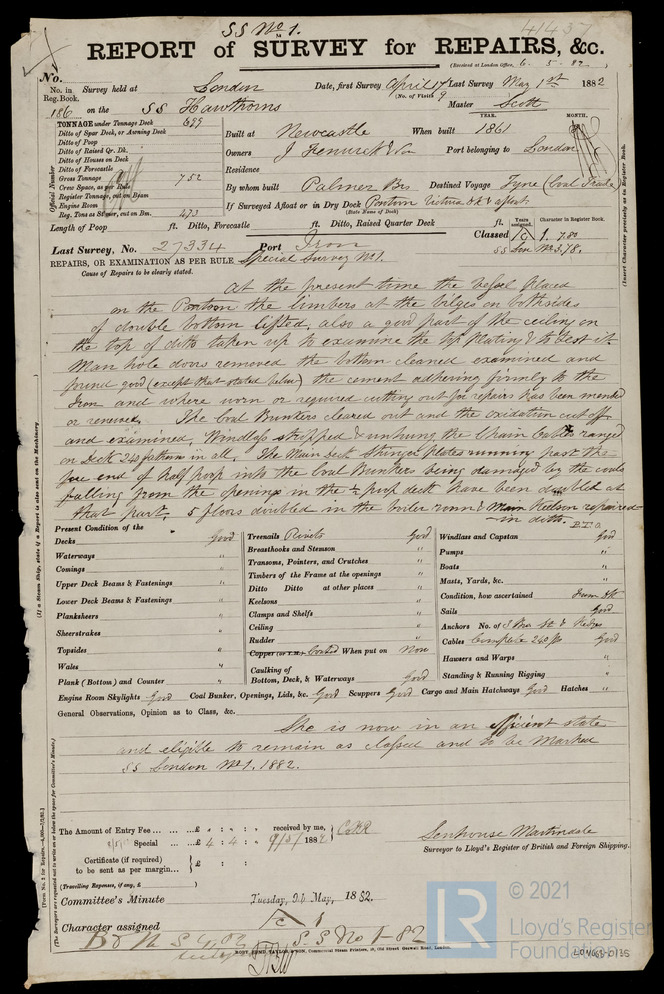 SS No 1.
41437
REPORT of SURVEY for REPAIRS, &c.
(Received at London Office, 6 . 5 . 82
No.
No. in Reg. Book. Survey held at London Date, first Survey April 17 Last Survey May 1st 1882
(No. of Visits 9
186 on the SS Hawthorns Master Scott
TONNAGE under Tonnage Deck 699
Ditto of Spar Deck, or Awning Deck
Ditto of Poop
Ditto of Raised Qr. Dk.
Ditto of Houses on Deck
Ditto of Forecastle
Gross Tonnage 752
Crew Space, as per Rule
Register Tonnage, cut on Beam
Engine Room
Reg. Tons as Steamer, cut on Bm. 473
Official Number
YEAR. MONTH.
Built at Newcastle When built 1861
Owners J Fenwick & Son Port belonging to London
Residence
By whom built Palmer Bros Destined Voyage Tyne (Coal Trade)
If Surveyed Afloat or in Dry Dock Pontoon Victoria Dk & afloat
(State Name of Dock)
Length of Poop ft. Ditto, Forecastle ft. Ditto, Raised Quarter Deck ft.
Years assigned. Character in Register Book.
Classed 1. 7.80
SS Lon No 3.78.
(Insert Character precisely as in Register Book.
Last Survey, No. 27334 Port Iron
REPAIRS, OR EXAMINATION AS PER RULE Special Survey No 1.
Cause of Repairs to be clearly stated.
At the present time the vessel placed
on the Pontoon the limbers at the bilges on both sides
of double bottom lifted, also a good part of the ceiling on
the top of ditto taken up to examine the top plating & to test it
Man hole doors removed the bottom cleaned examined and
found good (except that stated below) the cement adhering firmly to the
Iron and where worn or required cutting out for repairs has been mended
or renewed. The Coal Bunkers cleared out and the oxidation cut off
and examined, Windlass stripped & unhung the Chain Cables ranged
on Deck 240 fathoms in all. The Main deck Stringer plates running past the
fore end of half poop into the Coal Bunkers being damaged by the coals
falling from the openings in the ½ poop deck have been doubled at
that part. 5 floors doubled in the boiler room & Main Keelson repaired
in ditto. P.T.O.
Present Condition of the
Decks Good
Waterways "
Comings "
Upper Deck Beams & Fastenings "
Lower Deck Beams & Fastenings "
Planksheers "
Sheerstrakes "
Topsides "
Wales "
Plank (Bottom) and Counter "
Treenails Rivets Good
Breasthooks and Stemson "
Transoms, Pointers, and Crutches "
Timbers of the Frame at the openings "
Ditto Ditto at other places "
Keelsons "
Clamps and Shelfs "
Ceiling "
Rudder "
Copper (or Y.M.) Coated When put on Now
Caulking of Bottom, Deck, & Waterways Good
Windlass and Capstan Good
Pumps "
Boats "
Masts, Yards, &c. "
Condition, how ascertained
Sails Good
Anchors No. of 3 Bro St & Kedges
Cables Complete 240 fms Good
Hawsers and Warps "
Standing & Running Rigging "
Engine Room Skylights Good Coal Bunker, Openings, Lids, &c. Good Scuppers Good Cargo and Main Hatchways Good Hatches "
General Observations, Opinion as to Class, &c.
She is now in an efficient state
and eligible to remain as classed and to be Marked
SS London No 1. 1882.
The Amount of Entry Fee ... £ : : received by me,
Special ... £ 4 : 4 : 9/5/ 1882
Certificate (if required) to be sent as per margin... £ :
(Travelling Expenses, if any, £ )
Senhouse Martindale
Surveyor to Lloyd's Register of British and Foreign Shipping.
Committee's Minute Tuesday, 9th May, 1882.
Character assigned 1
S.S No 1-82
ROBT. HUME, TAYLOR, & SON, Commercial Steam Printers, 19, Old Street, Goswell Road, London.
(If a Steam Ship, state if a Report is also sent on the Machinery
(The Surveyors are requested not to write on or below the space for Committee's Minute.)
LR
© 2021
Lloyd's Register
Foundation